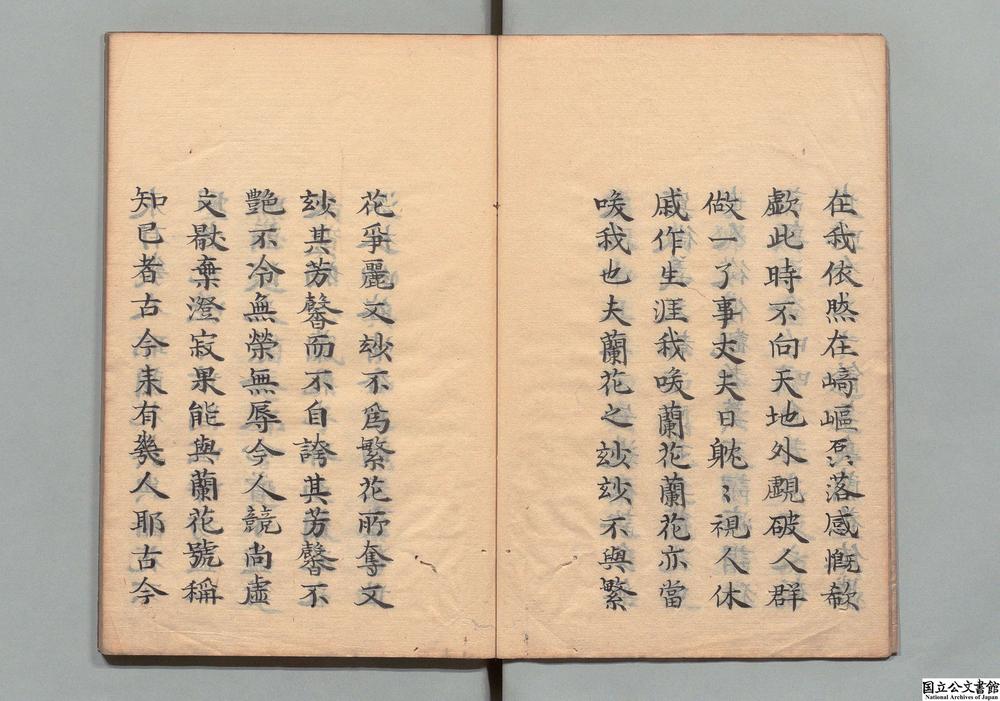 在我依然在崎嶇磊落感慨欷
歔此時不向天地外覷破人群
做一了事丈夫日眈〻視人休
戚作生涯我唉蘭花蘭花亦當
唉我也夫蘭花之玅玅不與繁
花爭麗文玅不爲繁花所奪文
玅其芳馨而不自誇其芳馨不
艷不冷無榮無辱今人競尚虛
文㪚棄澄寂果能與蘭花號稱
知已者古今来有幾人耶古今
国立公文書館
National Archives of Japan